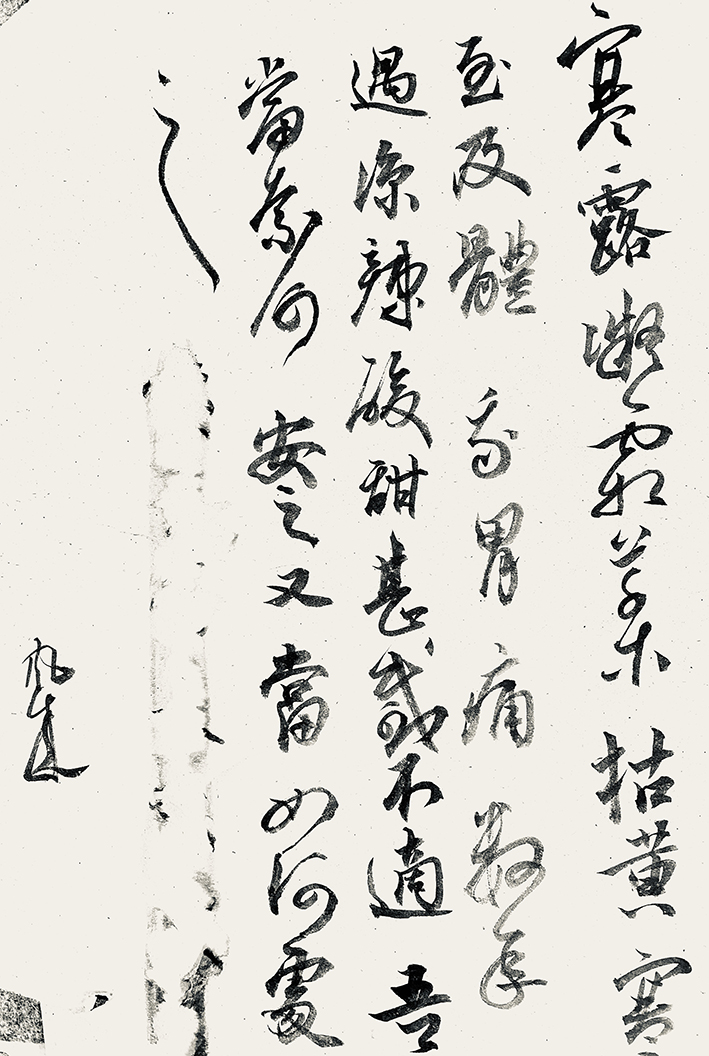 寒露凝霜菜木枯黄寒
至及體我胃痛數年
遇涼辣酸甜甚感不適吾
當奈何安之又當如何處
之